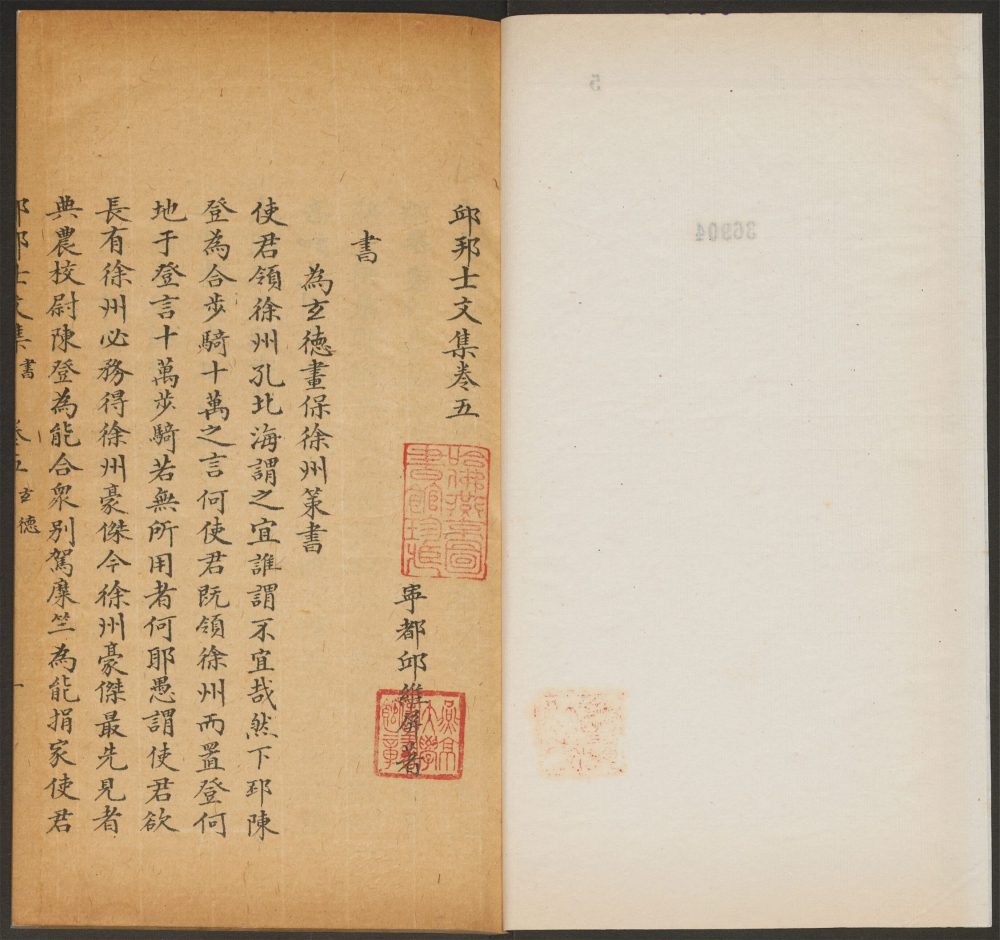 邱邦士文集卷五
寕都邱維屏著
書
為玄德畫保徐州策書
使君領徐州孔北海謂之宜誰謂不宜哉然下邳陳
登為合步騎十萬之言何使君既領徐州而置登何
地于登言十萬步騎若無所用者何耶愚謂使君欲
長有徐州必務得徐州豪傑今徐州豪傑最先見者
典農校尉陳登為能合衆别駕糜竺為能捐家使君
邱邦士文集 書 卷五 玄德 一
哈佛燕京圖書館珍藏
36904
5